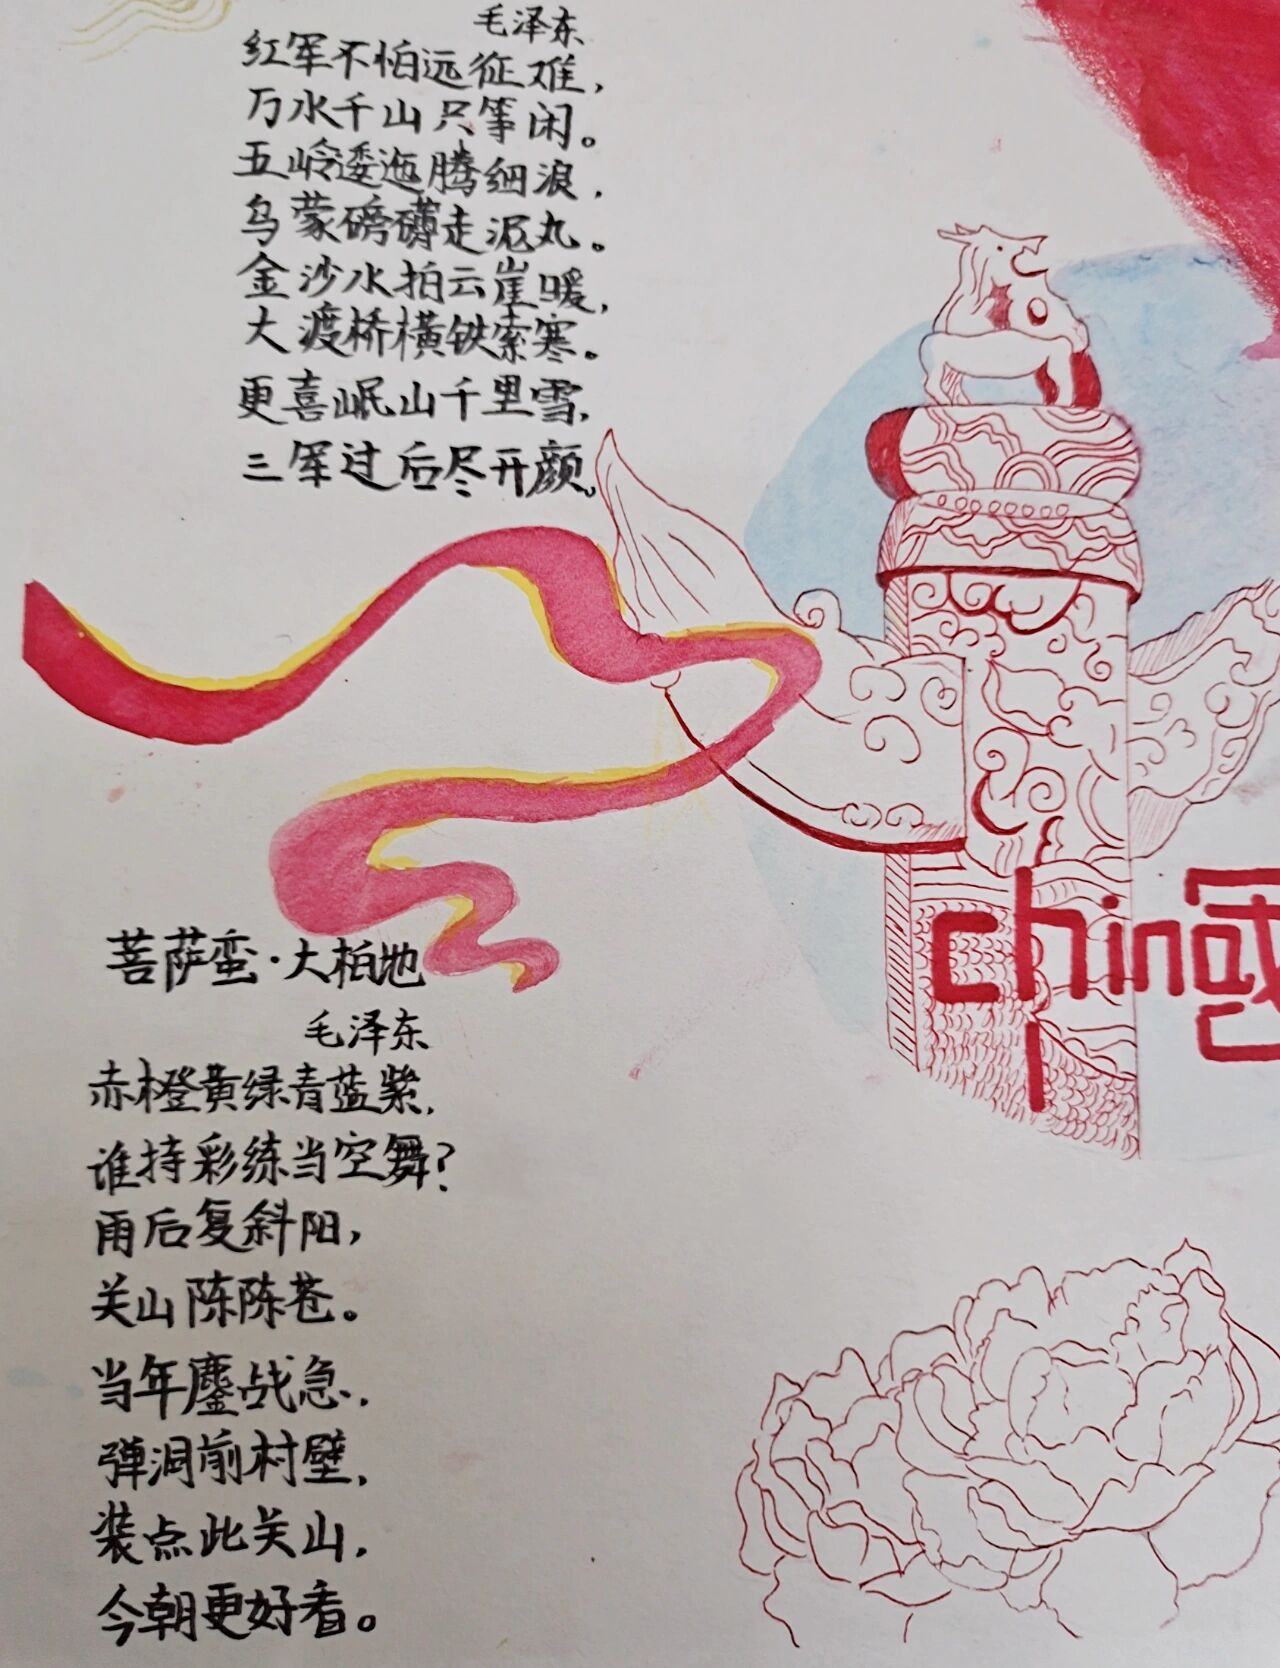 毛泽东
红军不怕远征难，
万水千山只等闲。
五岭逶迤腾细浪，
乌蒙磅礴走泥丸。
金沙水拍云崖暖，
大渡桥横铁索寒。
更喜岷山千里雪，
三军过后尽开颜。
chin國
菩萨蛮·大柏地
毛泽东
赤橙黄绿青蓝紫，
谁持彩练当空舞？
雨后复斜阳，
关山陈陈苍。
当年鏖战急，
弹洞前村壁，
装点此关山，
今朝更好看。